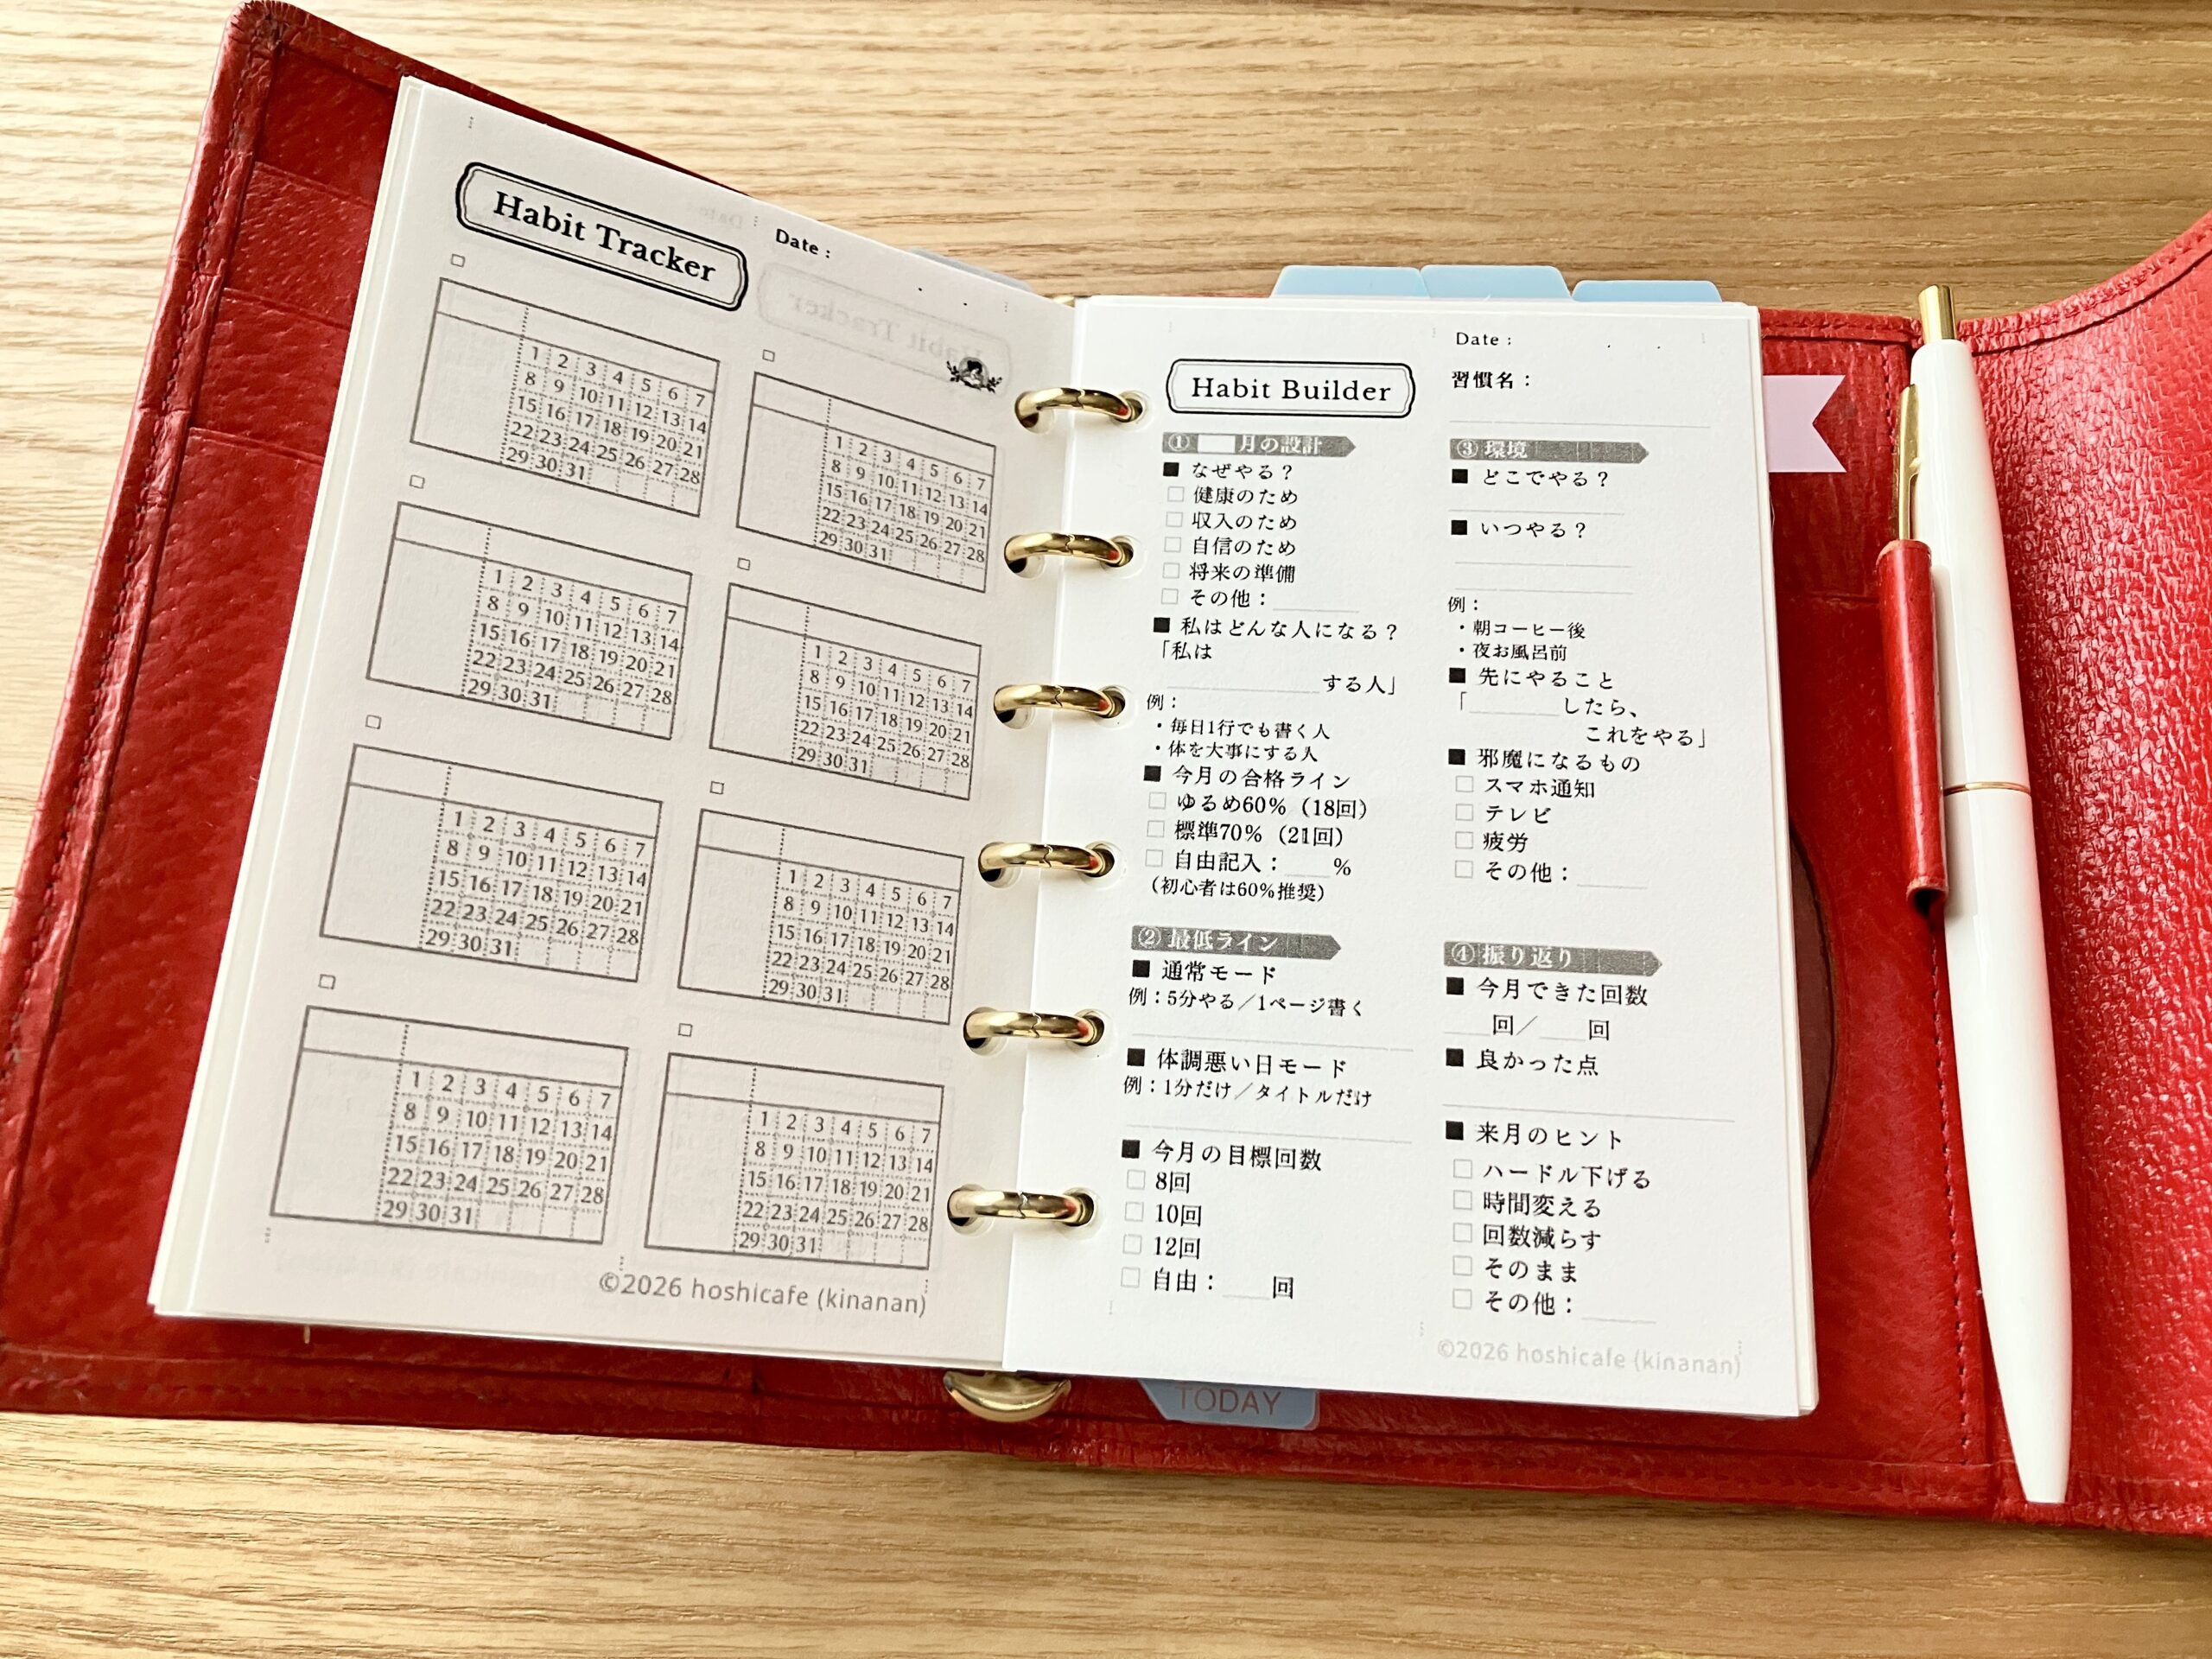 Habit Tracker
Date :
□
1 2 3 4 5 6 7
8 9 10 11 12 13 14
15 16 17 18 19 20 21
22 23 24 25 26 27 28
29 30 31
□
1 2 3 4 5 6 7
8 9 10 11 12 13 14
15 16 17 18 19 20 21
22 23 24 25 26 27 28
29 30 31
□
1 2 3 4 5 6 7
8 9 10 11 12 13 14
15 16 17 18 19 20 21
22 23 24 25 26 27 28
29 30 31
□
1 2 3 4 5 6 7
8 9 10 11 12 13 14
15 16 17 18 19 20 21
22 23 24 25 26 27 28
29 30 31
□
1 2 3 4 5 6 7
8 9 10 11 12 13 14
15 16 17 18 19 20 21
22 23 24 25 26 27 28
29 30 31
□
1 2 3 4 5 6 7
8 9 10 11 12 13 14
15 16 17 18 19 20 21
22 23 24 25 26 27 28
29 30 31
□
1 2 3 4 5 6 7
8 9 10 11 12 13 14
15 16 17 18 19 20 21
22 23 24 25 26 27 28
29 30 31
□
1 2 3 4 5 6 7
8 9 10 11 12 13 14
15 16 17 18 19 20 21
22 23 24 25 26 27 28
29 30 31
©2026 hoshicafe (kinanan)
Habit Builder
Date :
習慣名：
① 月の設計
■ なぜやる？
□ 健康のため
□ 収入のため
□ 自信のため
□ 将来の準備
□ その他：____
■ 私はどんな人になる？
「私は
____する人」
例：
・毎日1行でも書く人
・体を大事にする人
■ 今月の合格ライン
□ ゆるめ60%（18回）
□ 標準70%（21回）
□ 自由記入：____%
（初心者は60%推奨）
② 最低ライン
■ 通常モード
例：5分やる／1ページ書く
■ 体調悪い日モード
例：1分だけ／タイトルだけ
■ 今月の目標回数
□ 8回
□ 10回
□ 12回
□ 自由：____回
③ 環境
■ どこでやる？
■ いつやる？
例：
・朝コーヒー後
・夜お風呂前
■ 先にやること
「____したら、
これをやる」
■ 邪魔になるもの
□ スマホ通知
□ テレビ
□ 疲労
□ その他：____
④ 振り返り
■ 今月できた回数
____回／____回
■ 良かった点
■ 来月のヒント
□ ハードル下げる
□ 時間変える
□ 回数減らす
□ そのまま
□ その他：____
©2026 hoshicafe (kinanan)
TODAY